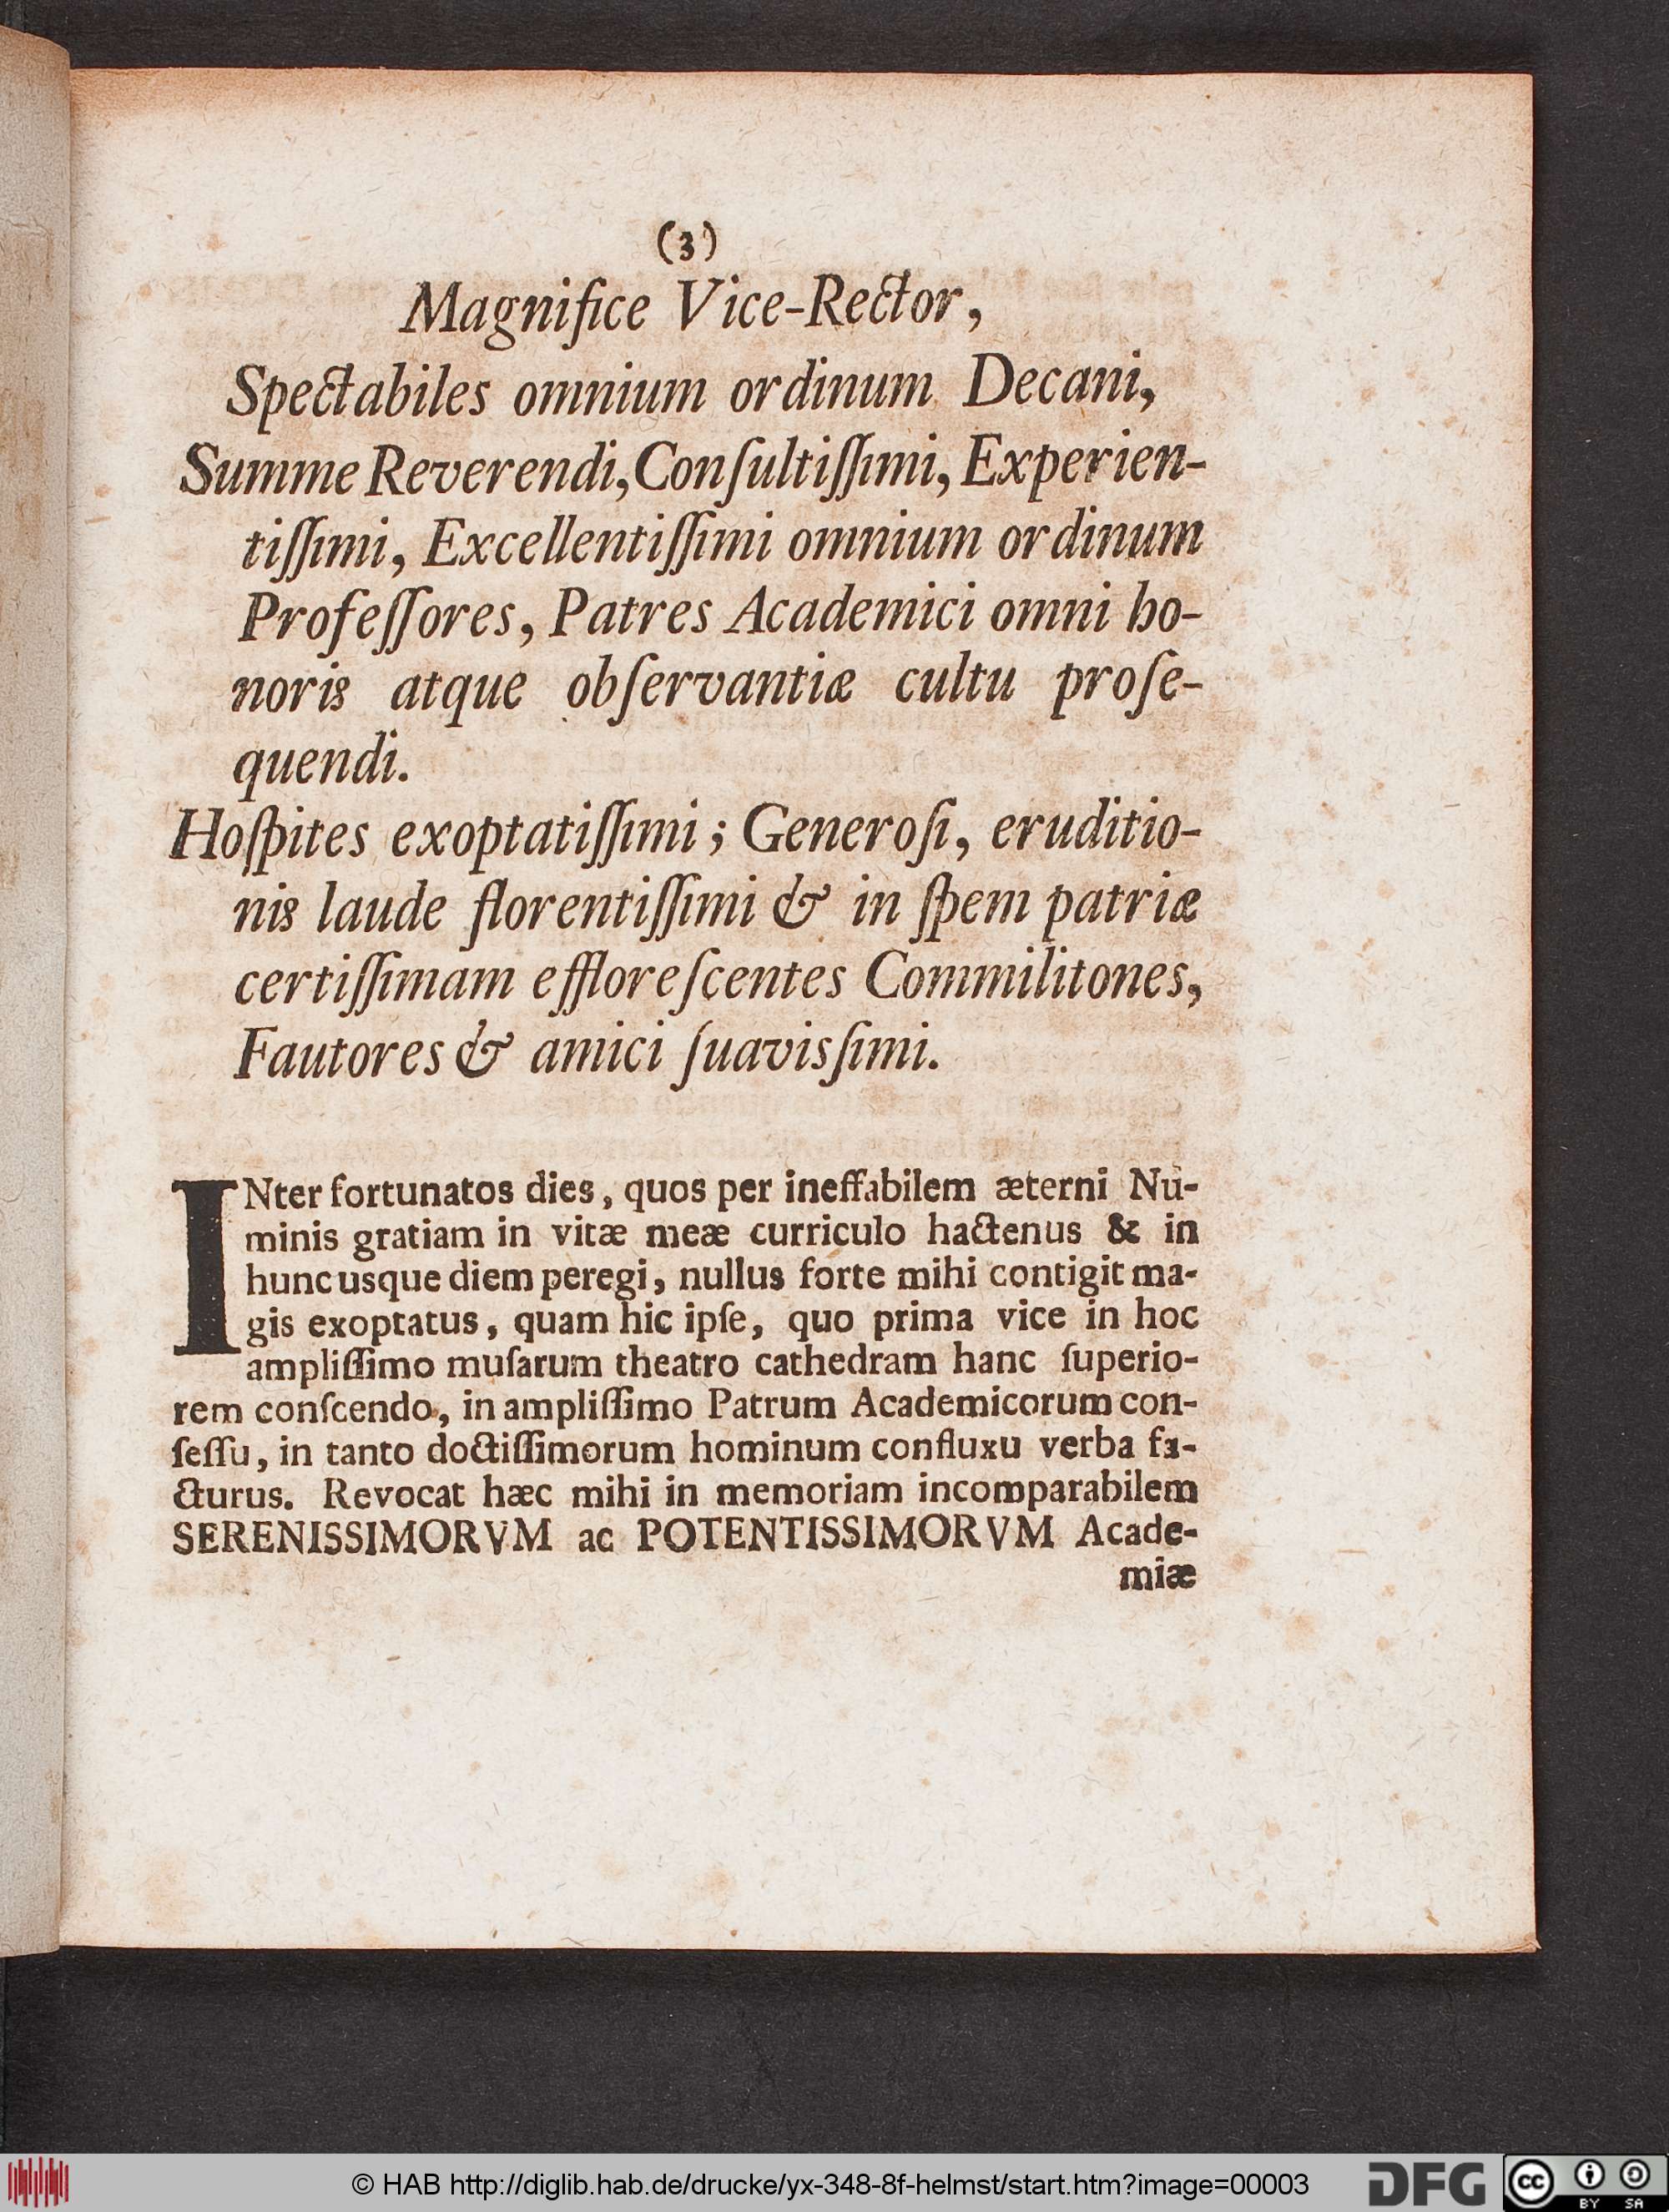 (3)
Magnifice Vice-Rector,
Spectabiles omnium ordinum Decani,
Summe Reverendi, Conſultiſſimi, Experien-
tiſſimi, Excellentiſſimi omnium ordinum
Profeſſores, Patres Academici omni ho-
noris atque obſervantiæ cultu proſe-
quendi.
Hoſpites exoptatiſſimi; Generoſi, eruditio-
nis laude florentiſſimi & in ſpem patriæ
certiſſimam effloreſcentes Commilitones,
Fautores & amici ſuavisſimi.
INter fortunatos dies, quos per ineffabilem æterni Nu-
minis gratiam in vitæ meæ curriculo hactenus & in
hunc usque diem peregi, nullus forte mihi contigit ma-
gis exoptatus, quam hic ipſe, quo prima vice in hoc
ampliſſimo muſarum theatro cathedram hanc ſuperio-
rem conſcendo, in ampliſſimo Patrum Academicorum con-
ſeſſu, in tanto doctiſſimorum hominum confluxu verba fa-
cturus. Revocat hæc mihi in memoriam incomparabilem
SERENISSIMORVM ac POTENTISSIMORVM Acade-
miæ
© HAB http://diglib.hab.de/drucke/yx-348-8f-helmst/start.htm?image=00003
DFG
cc
BY SA